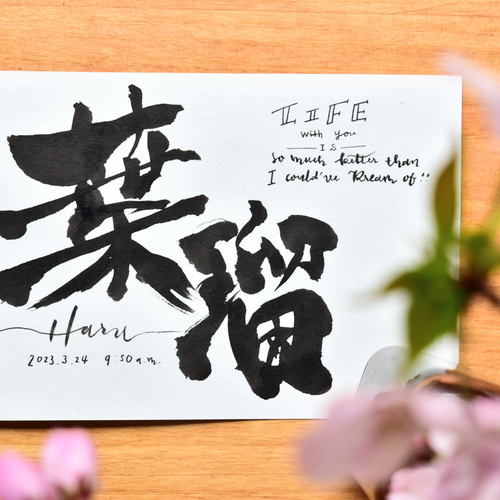 葉瑠
LIFE
with you
IS
so much better than
I could've Dream of!!
Haru
2023.3.24 9:50a.m.